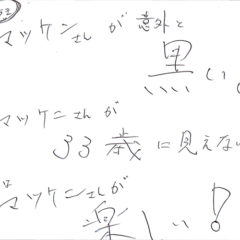 マッケンさんが意外と
黒い。
マッケンさんが
33歳に見えない
マッケンさんが
楽しい!